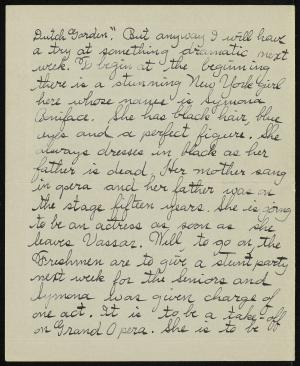 Dutch Garden." But anyway I will have
a try at something dramatic next
week. To begin at the beginning
there is a stunning New York Girl
here whose name is Symona
Boniface. She has black hair, blue
eyes and a perfect figure. She
always dresses in black as her
father is dead. Her mother sang
in opera and her father was on
the stage fifteen years. She is going
to be an actress as soon as she
leaves Vassar. Well, to go on, the
Freshmen are to give a stunt party
next week for the Seniors and
Symona was given charge of
one act. It is to be a take-off
on Grand Opera. She is to be